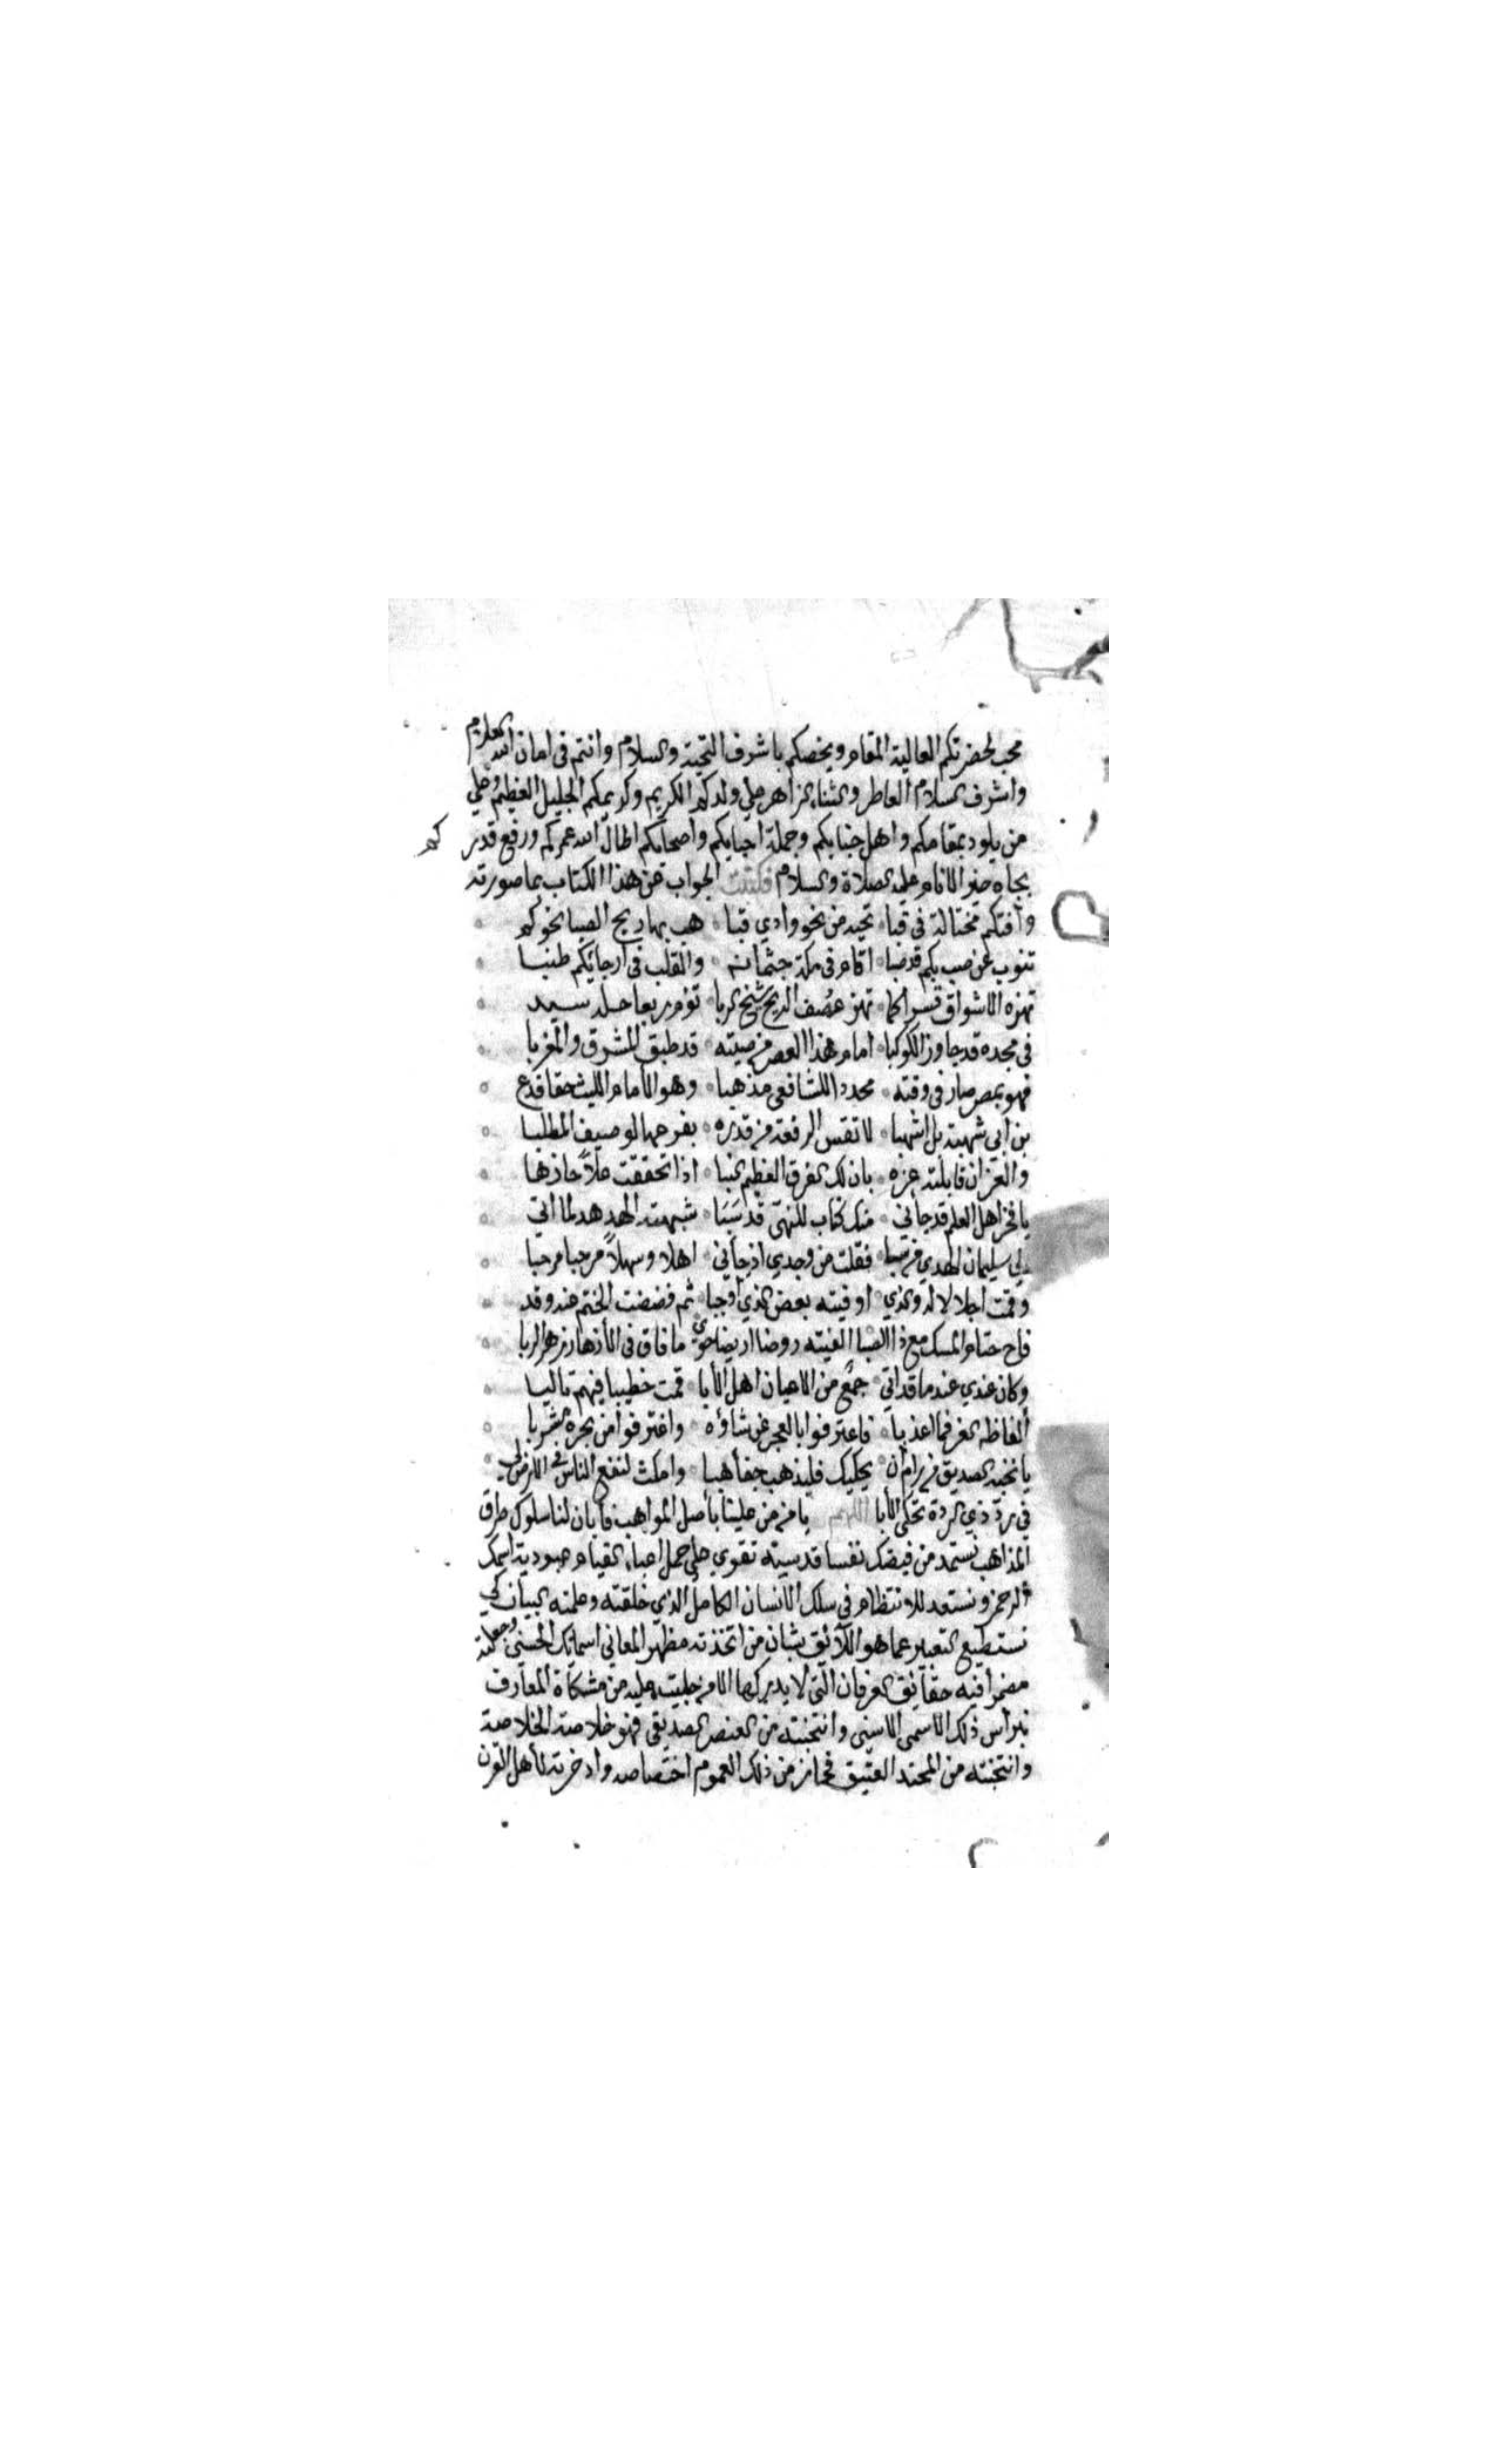 محب لحضرتكم العالية المقام ويخصكم باشرف التحية والسلام وانتم في امان الله العلام
واشرف السلام العاطر والثناء الزاهر على ولدكم الكريم وكريمكم الجليل العظيم وعلى
من يلوذ بمقامكم واهل جنابكم وجملة احبابكم واصحابكم اطال الله عمركم ورفع قدركم
بجاه خير الانام عليه الصلاة والسلام فكتبت الجواب عن هذا الكتاب بما صورته
وافتكم مختالة في قبا ه تحية من نحو وادي قبا ه هب بها ريح الصبا نحوكم ه
تنوب عن صب بكم قد صبا ه اقام في مكة جثمانه ه والقلب في ارجائكم طنبا ه
تهزه الاشواق قسرا كما ه تهز عصف الريح شيخ الربا ه تؤم ربعا حله سيد ه
في مجده قد جاوز الكوكبا ه امام هذا العصر من صيته ه قد طبق المشرق والمغربا ه
فهو بمصر صار في وقته ه مجددا للشافعي مذهبا ه وهو الامام الليث حقا فدع ه
بن ابي شهبة بل اشهبا ه لا تقس الرفعة من قدره ه بفرعها لو صيف المطلبا ه
والعز ان قابلته عزه ه بان لك الفرق العظيم النبا ه اذا تحققت علا حازها ه
يا فخر اهل العلم قد جاني ه منك كتاب للنهى قد سبا ه شبهته الهدهد لما اتى ه
الى سليمان الهدى من سبا ه فقلت من وجدي اذ جاني ه اهلا وسهلا مرحبا مرحبا ه
وقمت اجلالا له والذي ه اوفيته بعض الذي اوجبا ه ثم فضضت الختم عنه وقد ه
فاح ختام المسك مع ذا الصبا الفيته روضا اريضا حوى ما فاق في الأزهار زهر الربا ه
وكان عندي عندما قد اتى ه جمع من الاعيان اهل الأبا ه قمت خطيبا فيهم تاليا ه
ألفاظه الغر فما اعذبا ه فاعترفوا بالعجز عن شأوه ه واغترفوا من بحره الشربا ه
يا نخبة الصديق من رام ان ه يحكيك فليذهب جفا هبا ه وامكث لنفع الناس في الارض
في برد ذي الردة تحكي الأبا اللهم يا من من علينا بأصل المواهب فأبان لنا سلوك طرق
المذاهب نستمد من فيضك نفسا قدسية تقوى على حمل اعباء القيام بعبودية اسمك
الرحمن ونستعد للانتظام في سلك الانسان الكامل الذي خلقته وعلمته البيان كي
نستطيع التعبير عما هو اللائق بشان من اتخذته مظهر المعاني اسمائك الحسنى وجعلته
مضمرا فيه حقائق العرفان التي لا يدركها الا من جليت عليه من مشكاة المعارف
نبراس ذلك الاسمى الاسنى وانتخبته من العنصر الصديقي فهو خلاصة الخلاصة
وانتخبته من المحتد العتيق فحاز من ذلك العموم اختصاصه وادخرته لأهل القرن